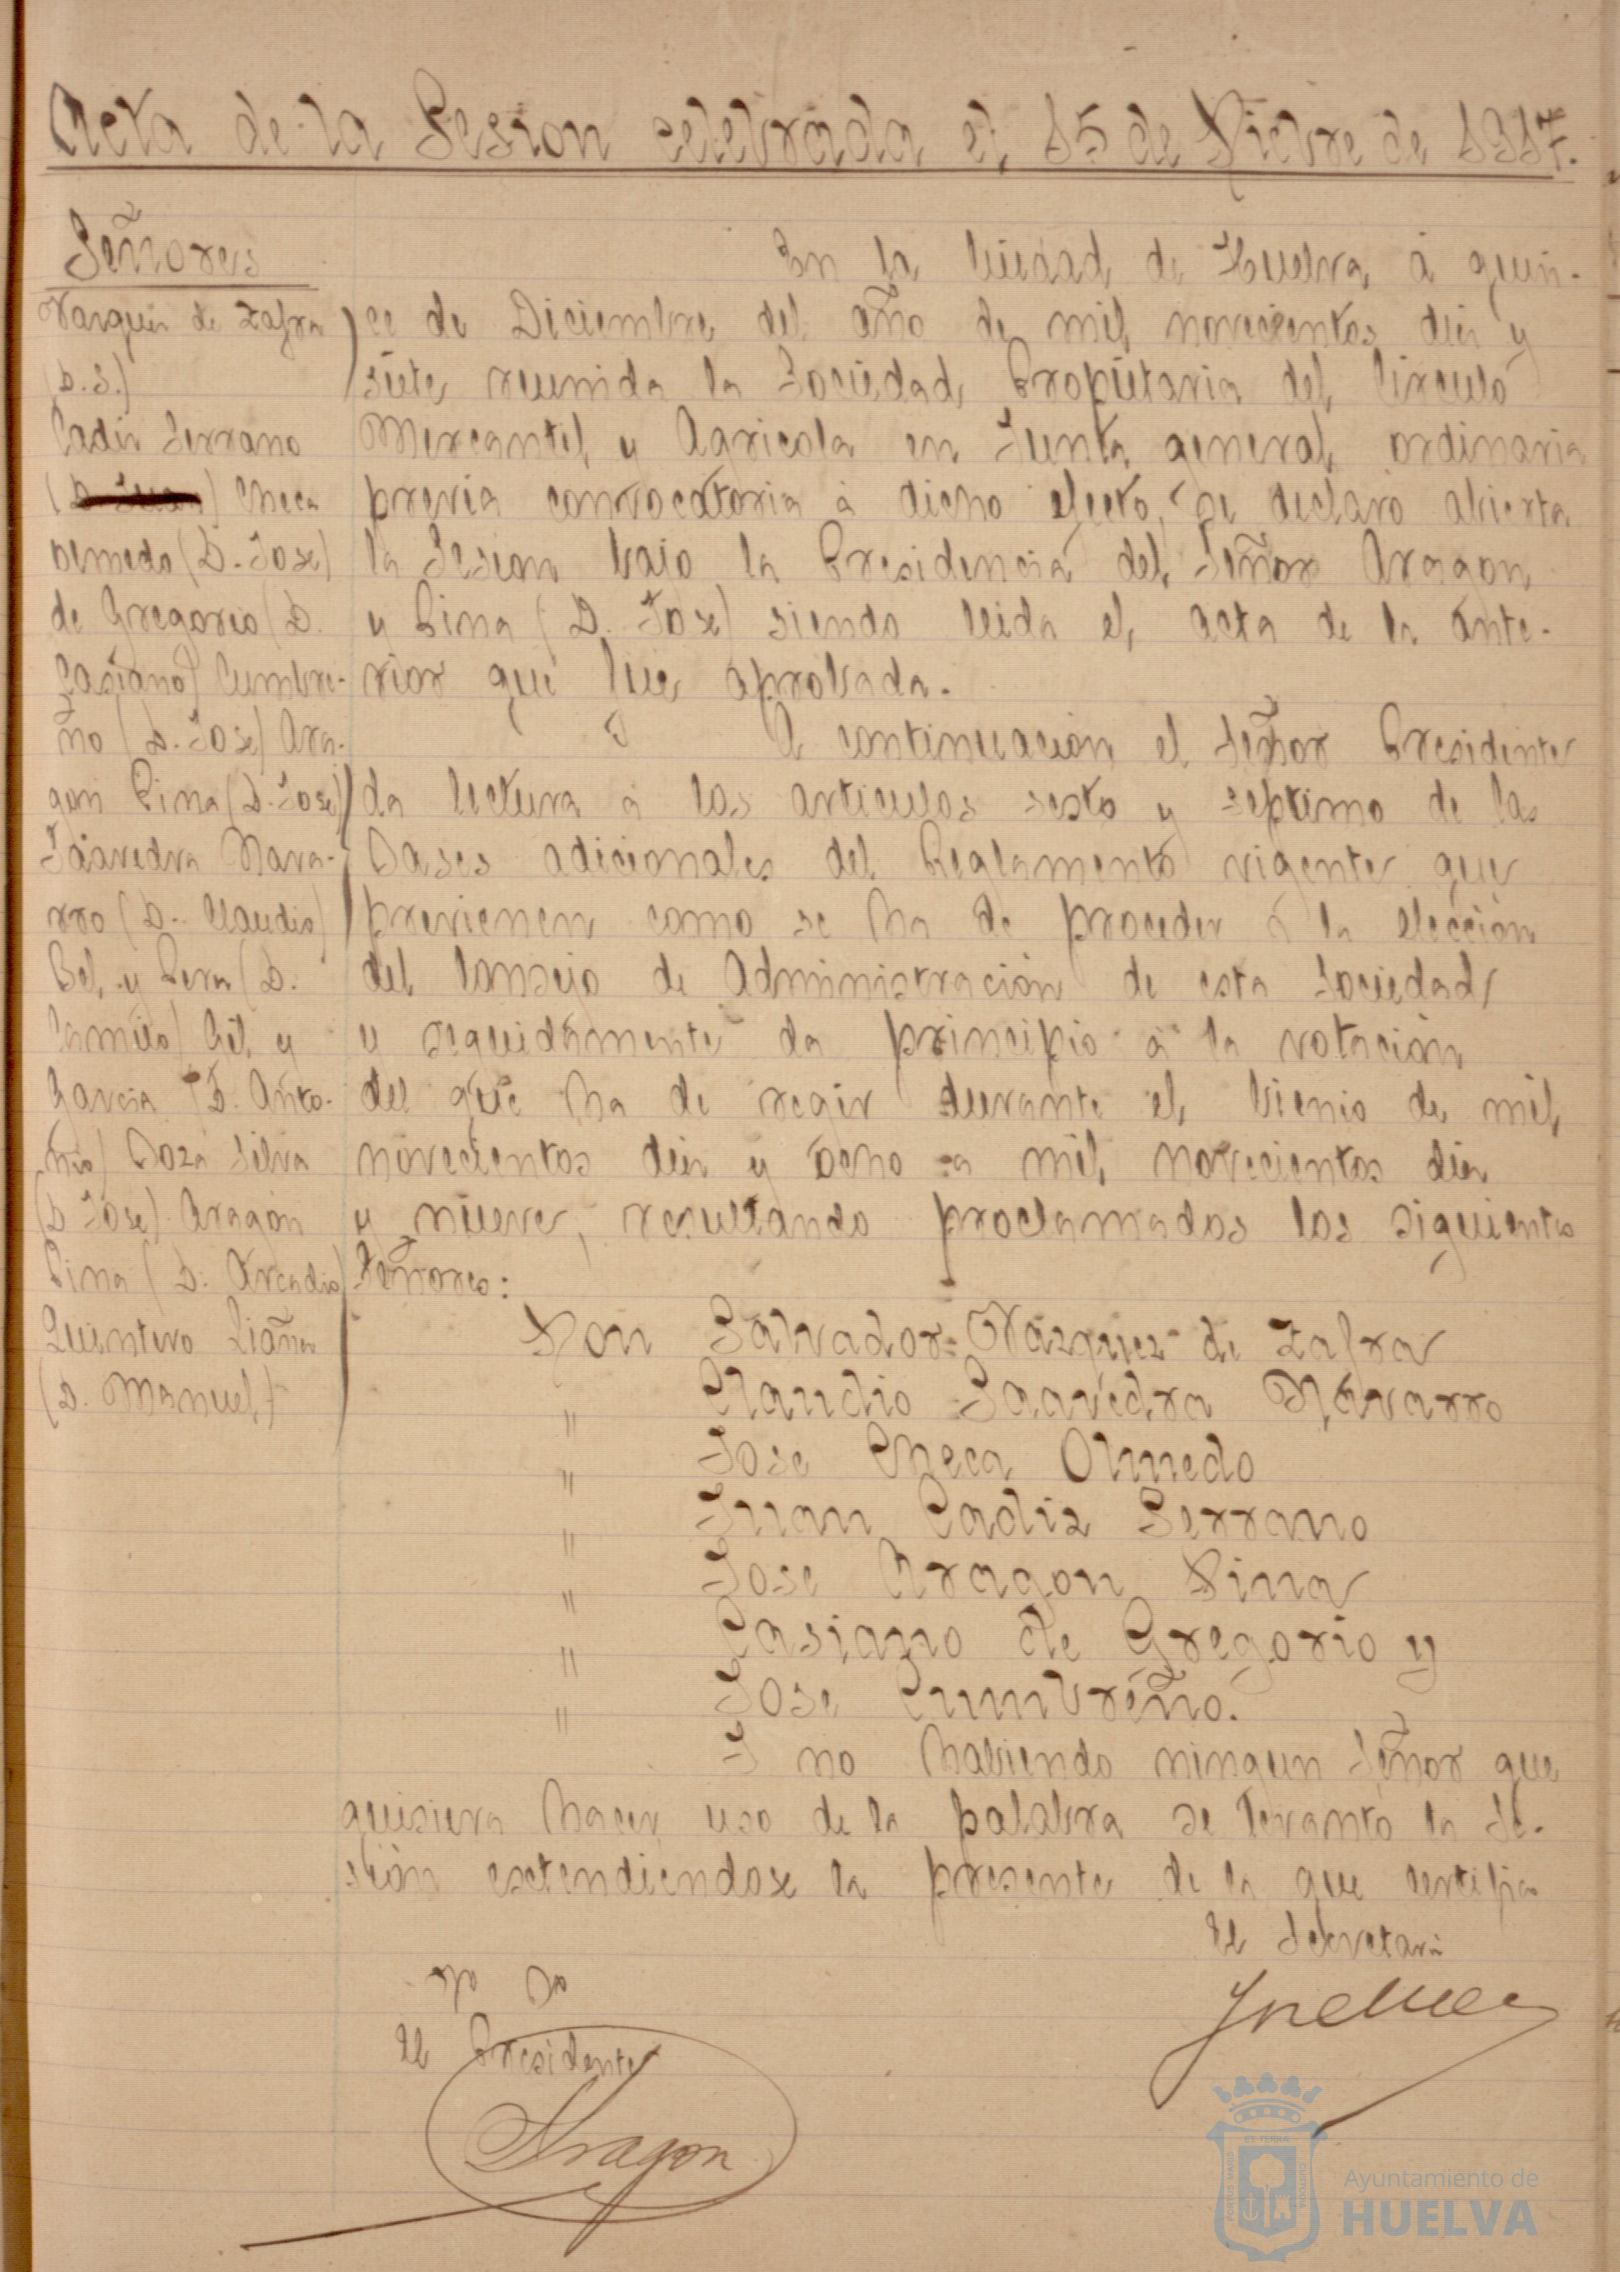 Acta de la Sesion celebrada el 15 de Dicbre de 1917.
Señores
Vazquez de Zafra
(D. S.)
Cadiz Serrano
(D. Juan) Checa
Olmedo (D. Jose)
de Gregorio (D.
Casiano) Cumbre-
ño (D. Jose) Ara-
gon Pina (D. Jose)
Saavedra Nava-
rro (D. Claudio)
Bel y Pera (D.
Camilo) Gil y
Garcia (D. Anto-
nio) Boza Silva
(D Jose) Aragón
Pina (D. Arcadio)
Quintero Liañez
(D. Manuel)
En la Ciudad de Huelva á quin-
ce de Diciembre del año de mil novecientos diez y
siete reunida la Sociedad Propietaria del Circulo
Mercantil y Agricola en Junta general ordinaria
previa convocatoria á dicho efecto, se declaró abierta
la Sesion bajo la Presidencia del Señor Aragon
y Pina (D. Jose) siendo leida el acta de la ante-
rior que fue aprobada.
A continuación el Señor Presidente
da lectura á los articulos sesto y septimo de las
Bases adicionales del Reglamento vigente que
previenen como se ha de proceder á la elección
del Consejo de Administración de esta Sociedad
y seguidamente da principio á la votación
del que ha de regir durante el bienio de mil
novecientos diez y ocho a mil novecientos diez
y nueve, resultando proclamados los siguientes
Señores:
Don Salvador Vázquez de Zafra
" Claudio Saavedra Návarro
" Jose Checa Olmedo
" Juan Cadiz Serrano
" Jose Aragon Pina
" Casiano de Gregorio y
" Jose Cumbreño.
Y no habiendo ningun Señor que
quisiera hacer uso de la palabra se levantó la Se-
sión esctendiendose la presente de la que certifico
El Secretario
Vº Bº
El Presidente
Aragon
Ayuntamiento de
HUELVA